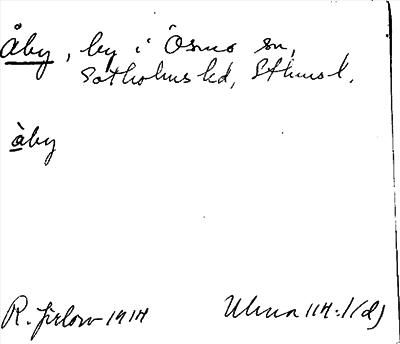 Åby, by i Ösmo sn,
Sotholms hd, Sthms l.
àby
R. Jirlow 1914 Ulma 114:1(d)